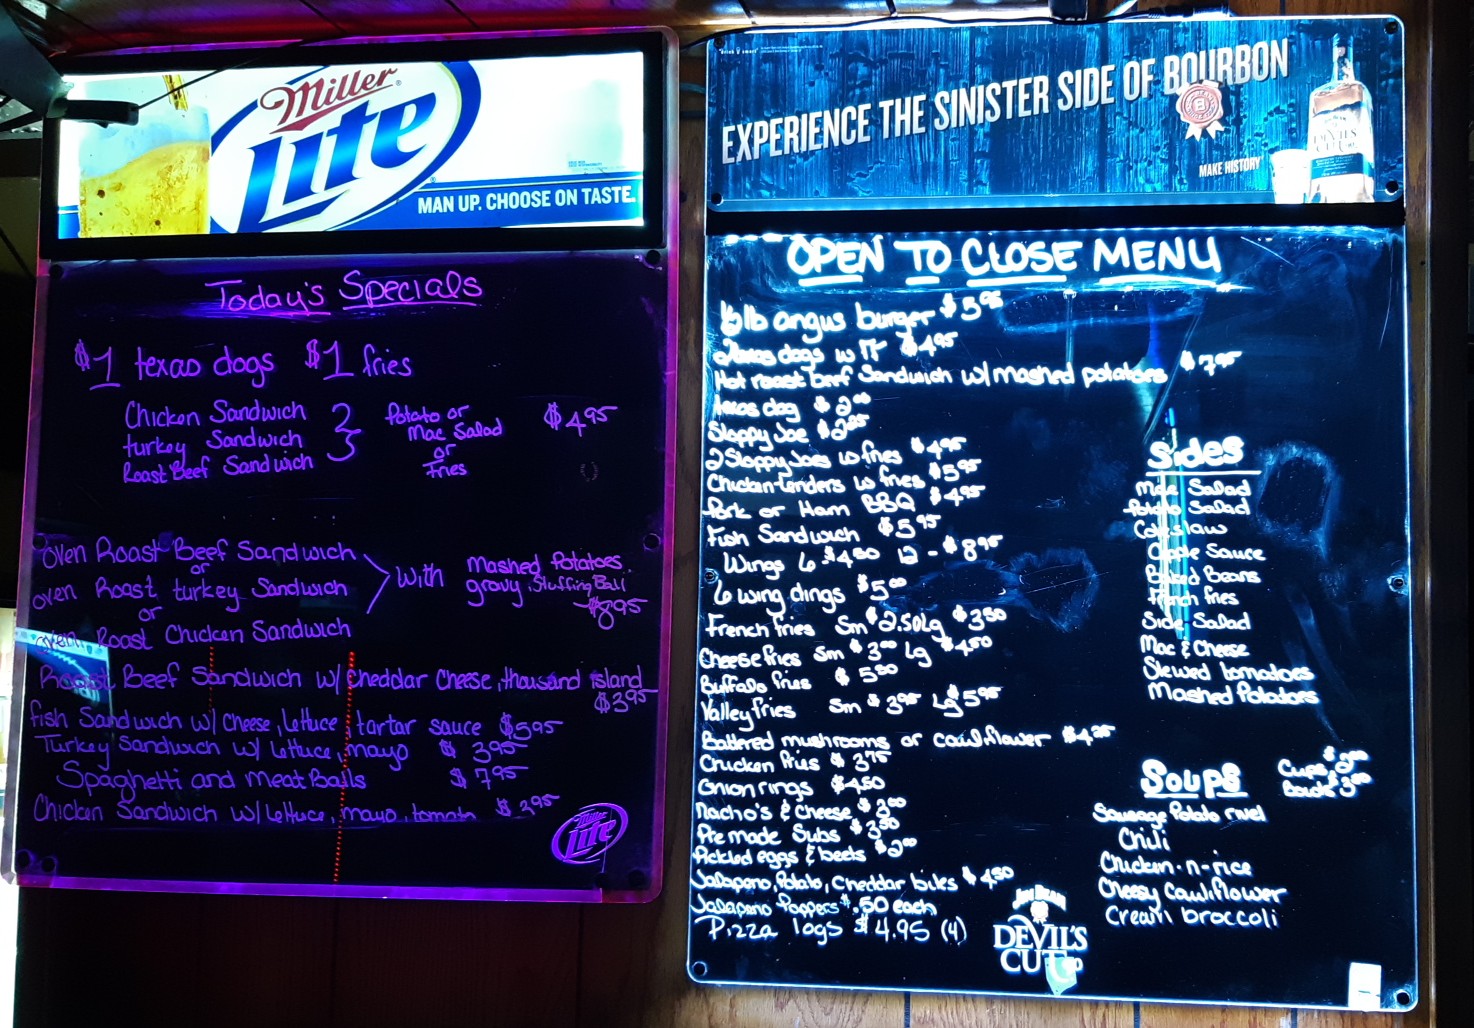 Miller
Lite
MAN UP. CHOOSE ON TASTE.
Today's Specials
$1 texas dogs $1 fries
Chicken Sandwich
turkey Sandwich
Roast Beef Sandwich
Potato or
Mac Salad
or
Fries
$4.95
oven Roast Beef Sandwich
or
oven Roast turkey Sandwich
or
oven Roast Chicken Sandwich
with
Mashed Potatoes,
gravy, Stuffing Ball
$8.95
Roast Beef Sandwich w/ cheddar cheese, thousand island
$3.95
fish Sandwich w/ cheese, lettuce, tartar sauce $5.95
Turkey Sandwich w/ lettuce, mayo $3.95
Spaghetti and Meat Balls $7.95
Chicken Sandwich w/ lettuce, mayo, tomato $3.95
Miller
Lite
EXPERIENCE THE SINISTER SIDE OF BOURBON
MAKE HISTORY
DEVIL'S
CUT
OPEN TO CLOSE MENU
lb angus burger
2 texas dogs w FF $4.95
Hot roast beef Sandwich w/ mashed potatoes $7.95
texas dog $2.00
Sloppy Joe
2 Sloppy Joes w fries $4.95
Chicken tenders w fries $5.95
Pork or Ham BBQ $4.95
Fish Sandwich $5.95
Wings 6 - $4.50 12 - $8.95
6 wing dings $5.00
French fries Sm $2.50 Lg $3.50
Cheese fries Sm $3.00 Lg $4.50
Buffalo fries $5.50
Valley fries Sm $3.95 Lg $5.95
Battered mushrooms or cauliflower
Chicken fries $3.75
Onion rings $4.50
Nacho's & cheese $3.00
Pre made Subs $3.50
Pickled eggs & beets $2.00
Jalapeno, Potato, Cheddar bites $4.50
Jalapeno Poppers $.50 each
Pizza logs $4.95 (4)
Sides
Mac Salad
Potato Salad
Coleslaw
Apple Sauce
Baked Beans
French fries
Side Salad
Mac & Cheese
Stewed tomatoes
Mashed Potatoes
Soups
Cups $2.00
Bowls $3.00
Sausage Potato rivel
Chili
Chicken-n-rice
Cheesy Cauliflower
Cream broccoli
JIM BEAM
DEVIL'S
CUT